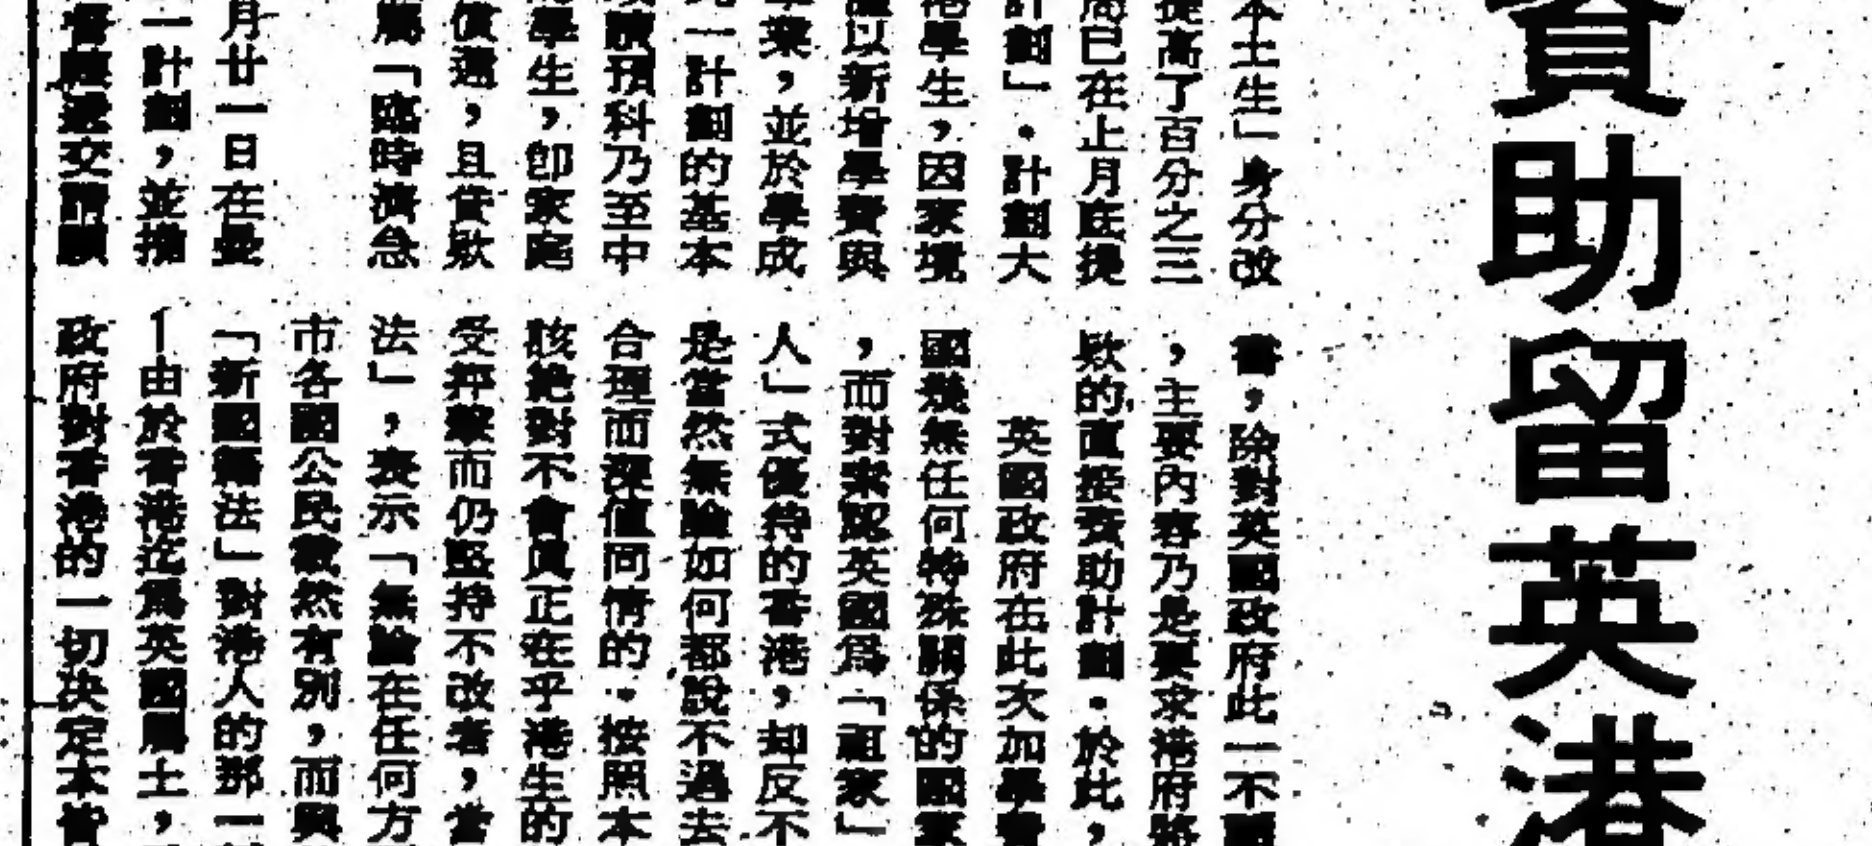 資助留英港
本土生」身分改
提高了百分之三
局已在上月底提
計劃」。計劃大
港學生，因家境
以新增學費與
業，並於學成
一計劃的基本
讀預科乃至中
學生，卽家庭
償還，且貸欵
屬「臨時濟急
月廿一日在
一計劃，並
交請願
，除對英國政府此一不
，主要內容乃是要求港府將
欵的直接資助計劃。於此，
英國政府在此次加學費
國幾無任何特殊關係的國家
，而對素認英國爲「祖家」
人」式優待的香港，却反不
是當然無論如何都說不過去
合理而深值同情的。按照本
該絕對不會眞正在乎港生的
受抨擊而仍堅持不改者，當
法」，表示「無論在任何方
市各國公民截然有別，而與
「新國籍法」對港人的那一
由於香港迄爲英國屬土，
政府對香港的一切決定本皆